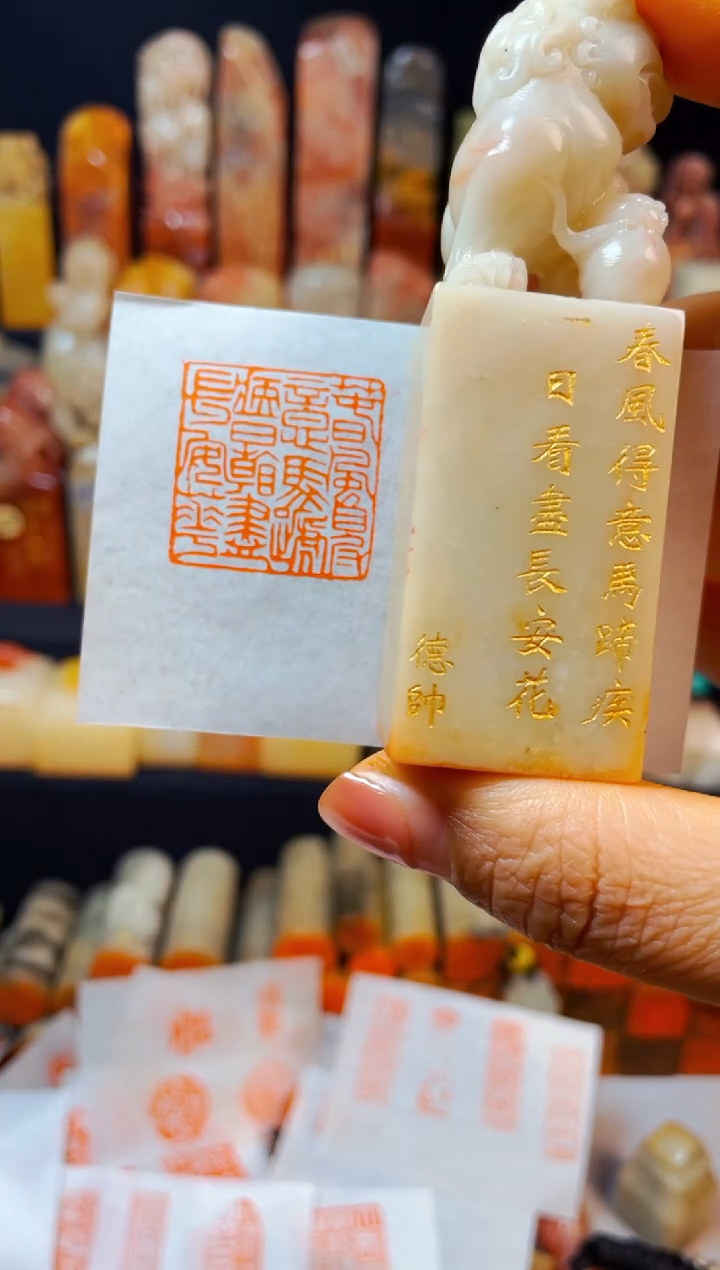 春風得意馬蹄疾
一日看盡長安花
德帥
春風得
意馬蹄
疾一日看盡
長安華